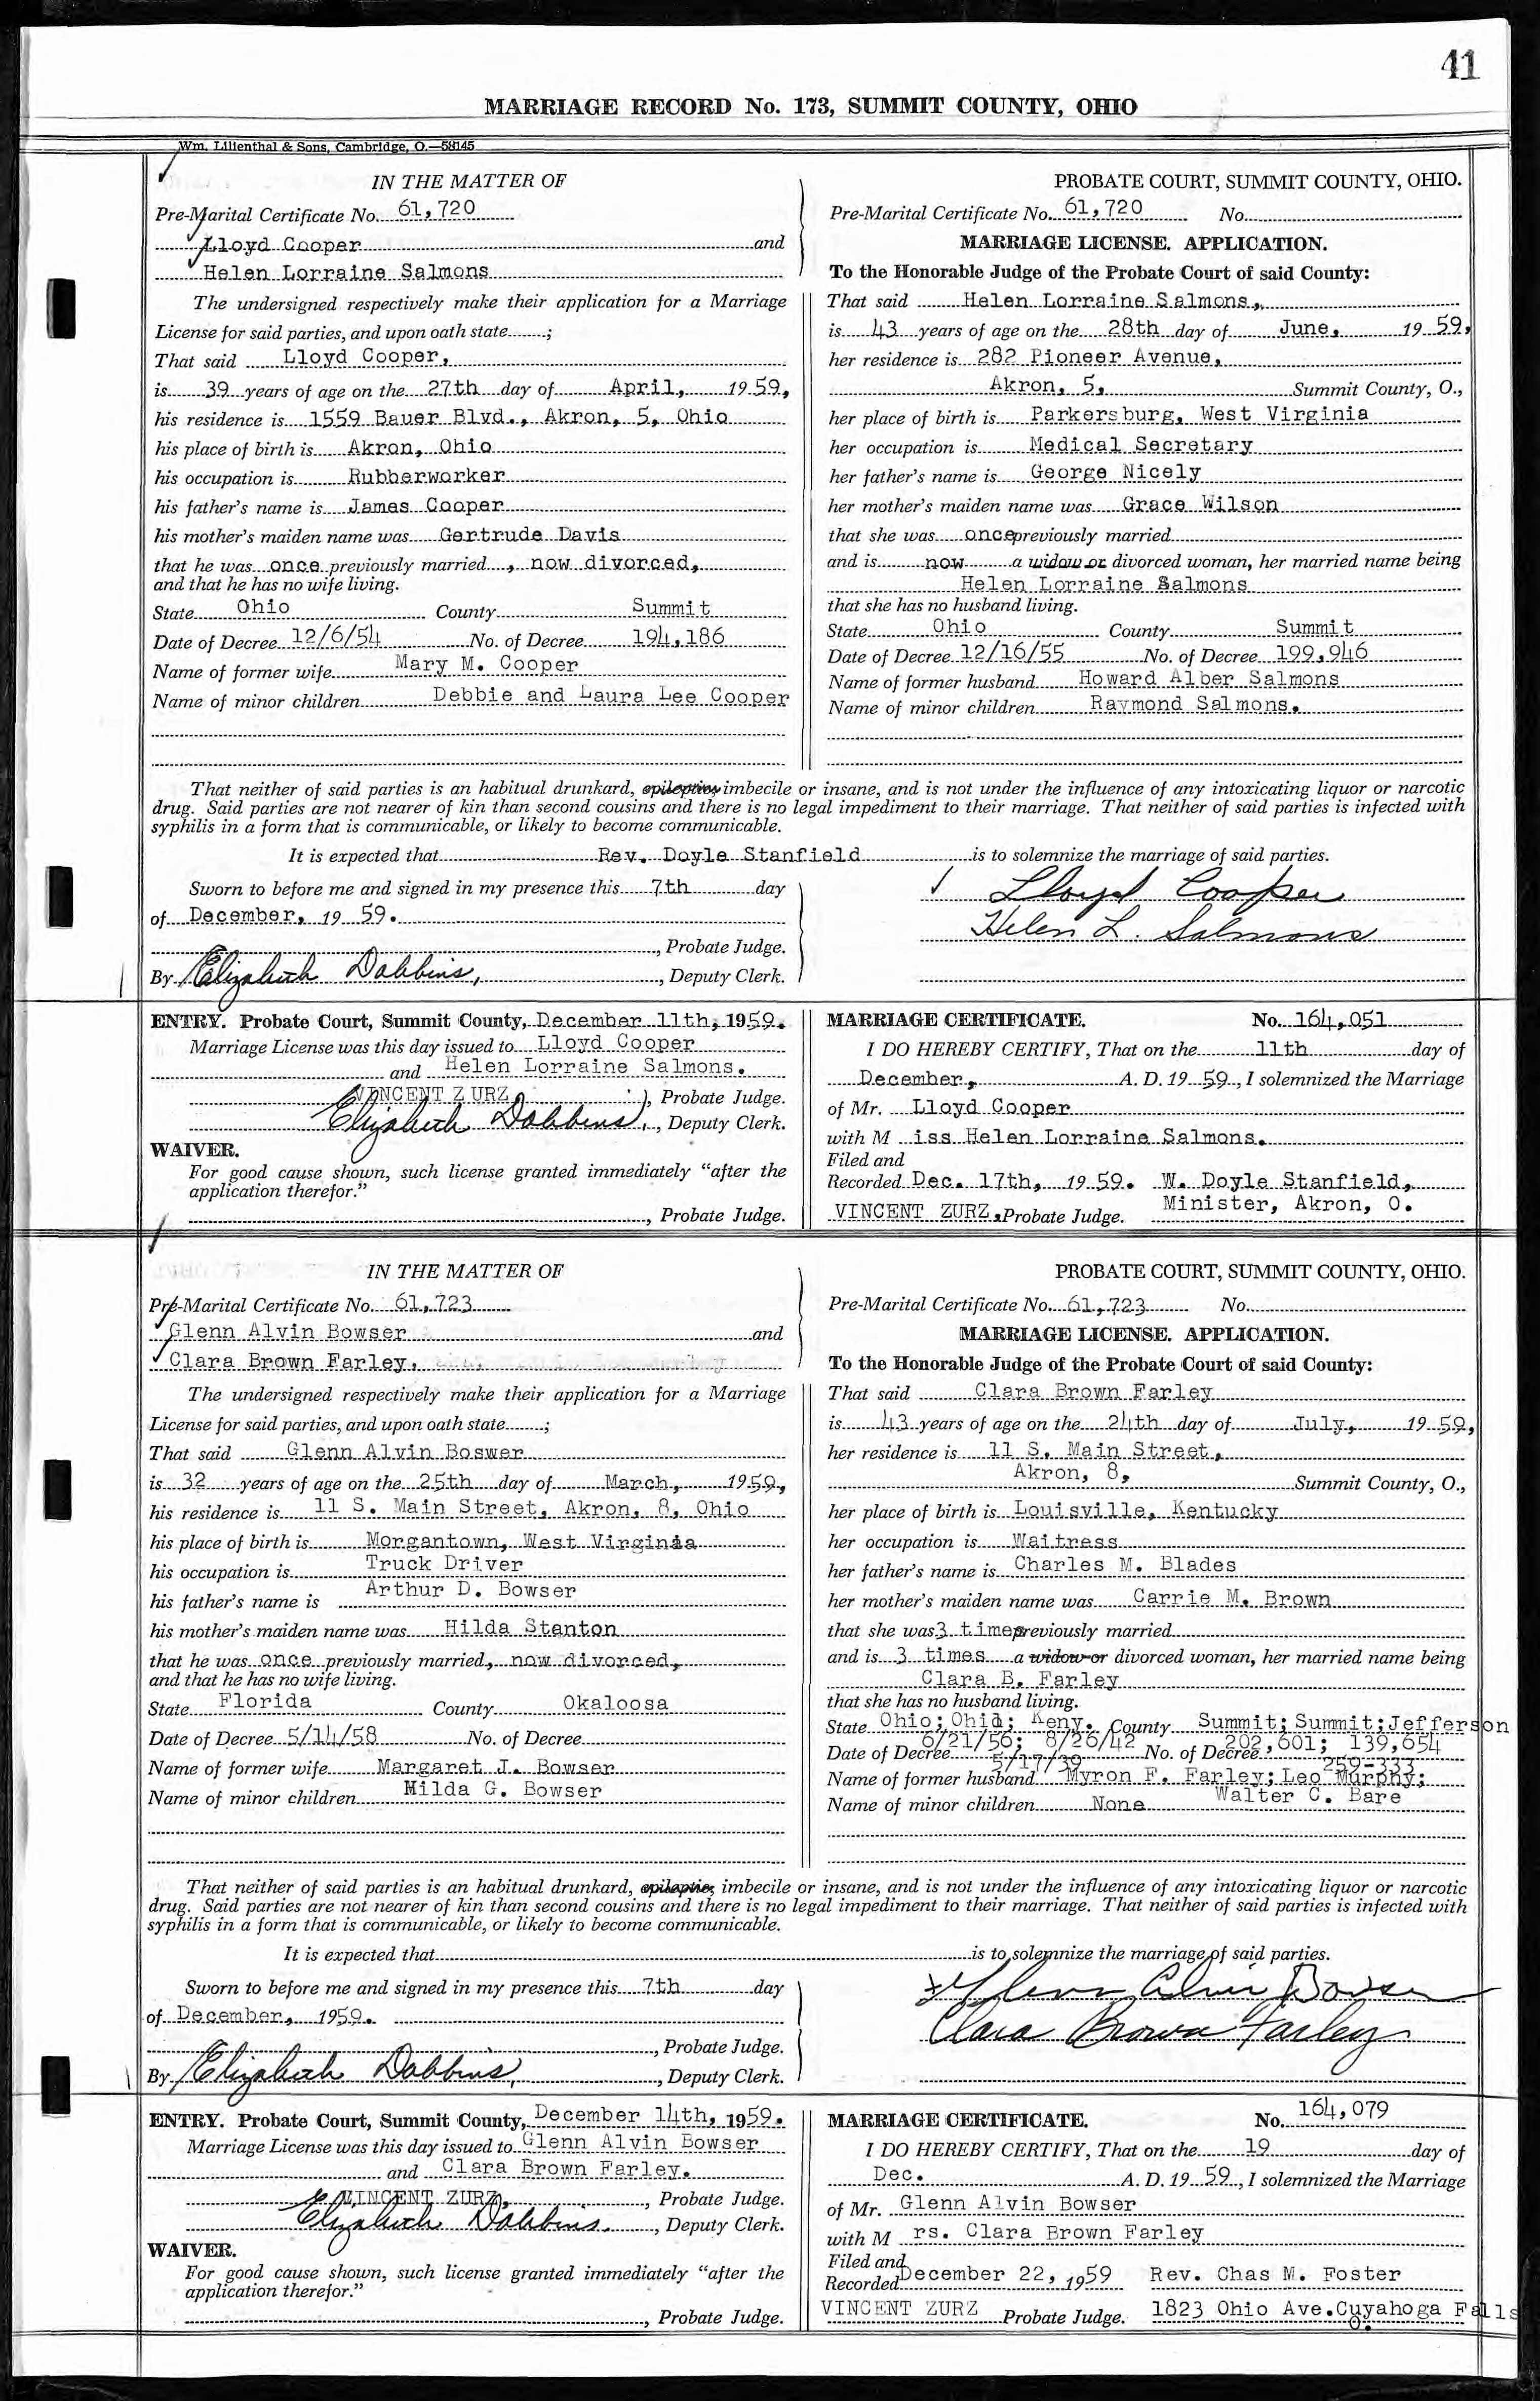 41
MARRIAGE RECORD No. 173, SUMMIT COUNTY, OHIO
Wm. Lilienthal & Sons, Cambridge, O.—58145
IN THE MATTER OF
Pre-Marital Certificate No. 61,720
Lloyd Cooper and
Helen Lorraine Salmons
The undersigned respectively make their application for a Marriage
License for said parties, and upon oath state ;
That said Lloyd Cooper,
is 39 years of age on the 27th day of April, 1959,
his residence is 1559 Bauer Blvd., Akron, 5, Ohio
his place of birth is Akron, Ohio
his occupation is Rubberworker
his father's name is James Cooper
his mother's maiden name was Gertrude Davis
that he was once previously married , now divorced,
and that he has no wife living.
State Ohio County Summit
Date of Decree 12/6/54 No. of Decree 194,186
Name of former wife Mary M. Cooper
Name of minor children Debbie and Laura Lee Cooper
PROBATE COURT, SUMMIT COUNTY, OHIO.
Pre-Marital Certificate No. 61,720 No.
MARRIAGE LICENSE. APPLICATION.
To the Honorable Judge of the Probate Court of said County:
That said Helen Lorraine Salmons,
is 43 years of age on the 28th day of June, 1959,
her residence is 282 Pioneer Avenue,
Akron, 5, Summit County, O.,
her place of birth is Parkersburg, West Virginia
her occupation is Medical Secretary
her father's name is George Nicely
her mother's maiden name was Grace Wilson
that she was once previously married
and is now a widow or divorced woman, her married name being
Helen Lorraine Salmons
that she has no husband living.
State Ohio County Summit
Date of Decree 12/16/55 No. of Decree 199,946
Name of former husband Howard Alber Salmons
Name of minor children Raymond Salmons.
That neither of said parties is an habitual drunkard, epileptic, imbecile or insane, and is not under the influence of any intoxicating liquor or narcotic
drug. Said parties are not nearer of kin than second cousins and there is no legal impediment to their marriage. That neither of said parties is infected with
syphilis in a form that is communicable, or likely to become communicable.
It is expected that Rev. Doyle Stanfield is to solemnize the marriage of said parties.
Sworn to before me and signed in my presence this 7th day
of December, 1959.
, Probate Judge.
By Elizabeth Dobbins, , Deputy Clerk.
Lloyd Cooper
Helen L. Salmons
ENTRY. Probate Court, Summit County, December 11th, 1959.
Marriage License was this day issued to Lloyd Cooper
and Helen Lorraine Salmons.
VINCENT ZURZ , Probate Judge.
Elizabeth Dobbins, , Deputy Clerk.
WAIVER.
For good cause shown, such license granted immediately "after the
application therefor."
, Probate Judge.
MARRIAGE CERTIFICATE. No. 164,051
I DO HEREBY CERTIFY, That on the 11th day of
December, A. D. 1959, I solemnized the Marriage
of Mr. Lloyd Cooper
with M iss Helen Lorraine Salmons.
Filed and
Recorded Dec. 17th, 1959. W. Doyle Stanfield,
VINCENT ZURZ, Probate Judge. Minister, Akron, O.
IN THE MATTER OF
Pre-Marital Certificate No. 61,723
Glenn Alvin Bowser and
Clara Brown Farley,
The undersigned respectively make their application for a Marriage
License for said parties, and upon oath state ;
That said Glenn Alvin Boswer
is 32 years of age on the 25th day of March, 1959,
his residence is 11 S. Main Street, Akron, 8, Ohio
his place of birth is Morgantown, West Virginia
his occupation is Truck Driver
his father's name is Arthur D. Bowser
his mother's maiden name was Hilda Stanton
that he was once previously married, now divorced,
and that he has no wife living.
State Florida County Okaloosa
Date of Decree 5/14/58 No. of Decree
Name of former wife Margaret J. Bowser
Name of minor children Hilda G. Bowser
PROBATE COURT, SUMMIT COUNTY, OHIO.
Pre-Marital Certificate No. 61,723 No.
MARRIAGE LICENSE. APPLICATION.
To the Honorable Judge of the Probate Court of said County:
That said Clara Brown Farley
is 43 years of age on the 24th day of July, 1959,
her residence is 11 S. Main Street,
Akron, 8, Summit County, O.,
her place of birth is Louisville, Kentucky
her occupation is Waitress
her father's name is Charles M. Blades
her mother's maiden name was Carrie M. Brown
that she was 3 times previously married
and is 3 times a widow or divorced woman, her married name being
Clara B. Farley
that she has no husband living.
State Ohio; Ohio; Keny. County Summit; Summit; Jefferson
6/21/56; 8/26/42 202,601; 139,654
Date of Decree 5/17/39 No. of Decree 259-333
Name of former husband Myron F. Farley; Leo Murphy;
Name of minor children None Walter C. Bare
That neither of said parties is an habitual drunkard, epileptic, imbecile or insane, and is not under the influence of any intoxicating liquor or narcotic
drug. Said parties are not nearer of kin than second cousins and there is no legal impediment to their marriage. That neither of said parties is infected with
syphilis in a form that is communicable, or likely to become communicable.
It is expected that is to solemnize the marriage of said parties.
Sworn to before me and signed in my presence this 7th day
of December, 1959.
, Probate Judge.
By Elizabeth Dobbins, , Deputy Clerk.
Glenn Alvin Bowser
Clara Brown Farley
ENTRY. Probate Court, Summit County, December 14th, 1959.
Marriage License was this day issued to Glenn Alvin Bowser
and Clara Brown Farley.
VINCENT ZURZ, , Probate Judge.
Elizabeth Dobbins. , Deputy Clerk.
WAIVER.
For good cause shown, such license granted immediately "after the
application therefor."
, Probate Judge.
MARRIAGE CERTIFICATE. No. 164,079
I DO HEREBY CERTIFY, That on the 19 day of
Dec. A. D. 1959, I solemnized the Marriage
of Mr. Glenn Alvin Bowser
with M rs. Clara Brown Farley
Filed and
Recorded December 22, 1959 Rev. Chas M. Foster
VINCENT ZURZ Probate Judge. 1823 Ohio Ave. Cuyahoga Falls
O.